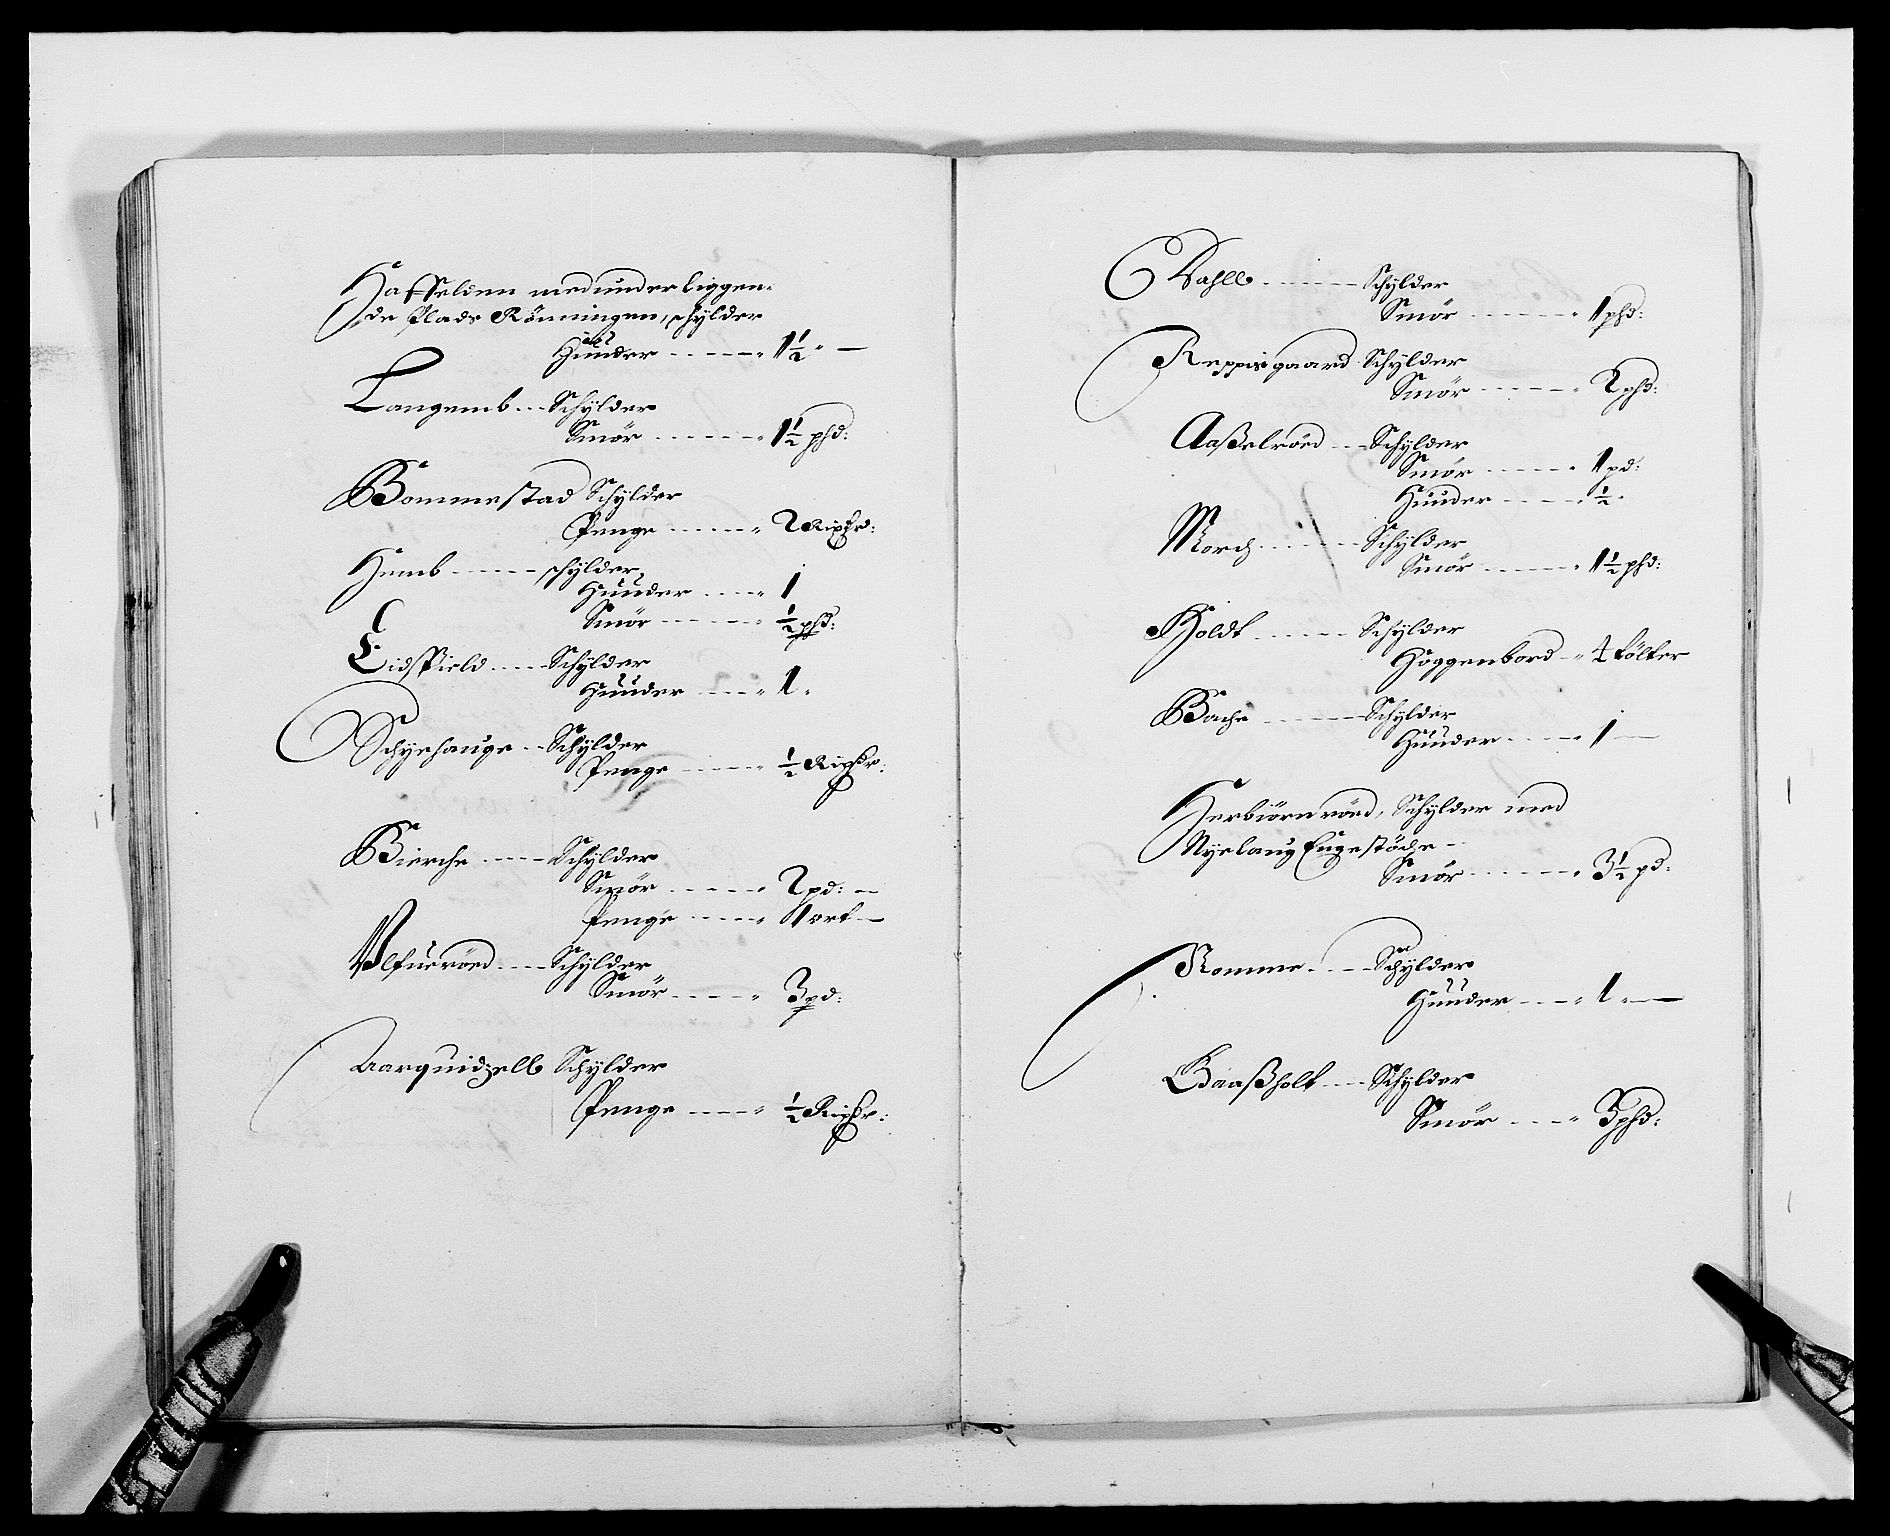 Hafsselden med underliggen-
de Plads Rönningen, schylder
Huuder ----- 1½ -
Langemb -- Schylder
Smör ------ 1½ phd:
Bommestad Schylder
Penge ----- 2 Rixdr:
Hemb ----- schylder
Huuder ---- 1
Smör ----- ½ phd:
Eidsfield ---- Schylder
Huuder ---- 1
Schyehauge -- Schylder
Penge ----- ½ Rixdr:
Bierche ---- Schylder
Smör ----- 2 pd: -
Penge ---- 1 ort -
Ulfueröed ---- Schylder
Smör ----- 3 pd:
Aarquidzell Schylder
Penge ---- ½ Rixdr:
Dahll ------ Schylder
Smör ------ 1 phd:
Reppisgaard Schylder
Smör ----- 2 phd:
Aaßelröed --- Schylder
Smör ----- 1 pd:
Huuder ---- ½
Morch ------ Schylder
Smör ----- 1½ phd:
Holdt ----- Schylder
Hoggenbord - 4 tölter
Bache ------ Schylder
Huuder ---- 1 -
Herbiörnröed, Schylder med
Nyelaug Engestöche -
Smör ------ 3½ pd:
Romme ---- Schylder
Huuder ---- 1 -
Gaaßholt --- Schylder
Smör ---- 3 phd: